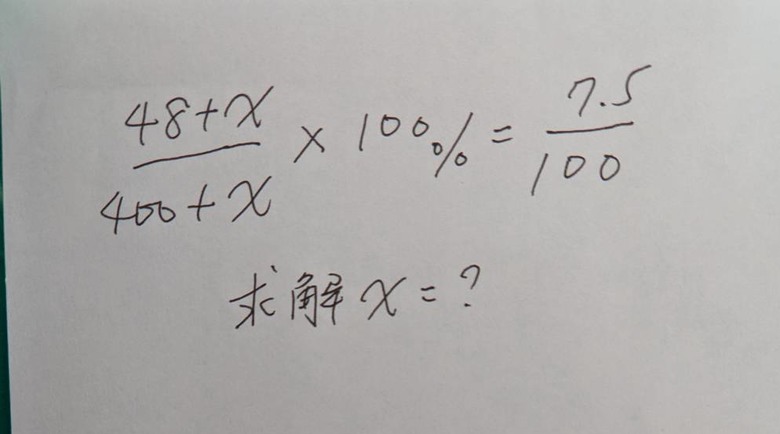 (48+x)/(400+x) × 100% = 7.5/100
求解 x = ?